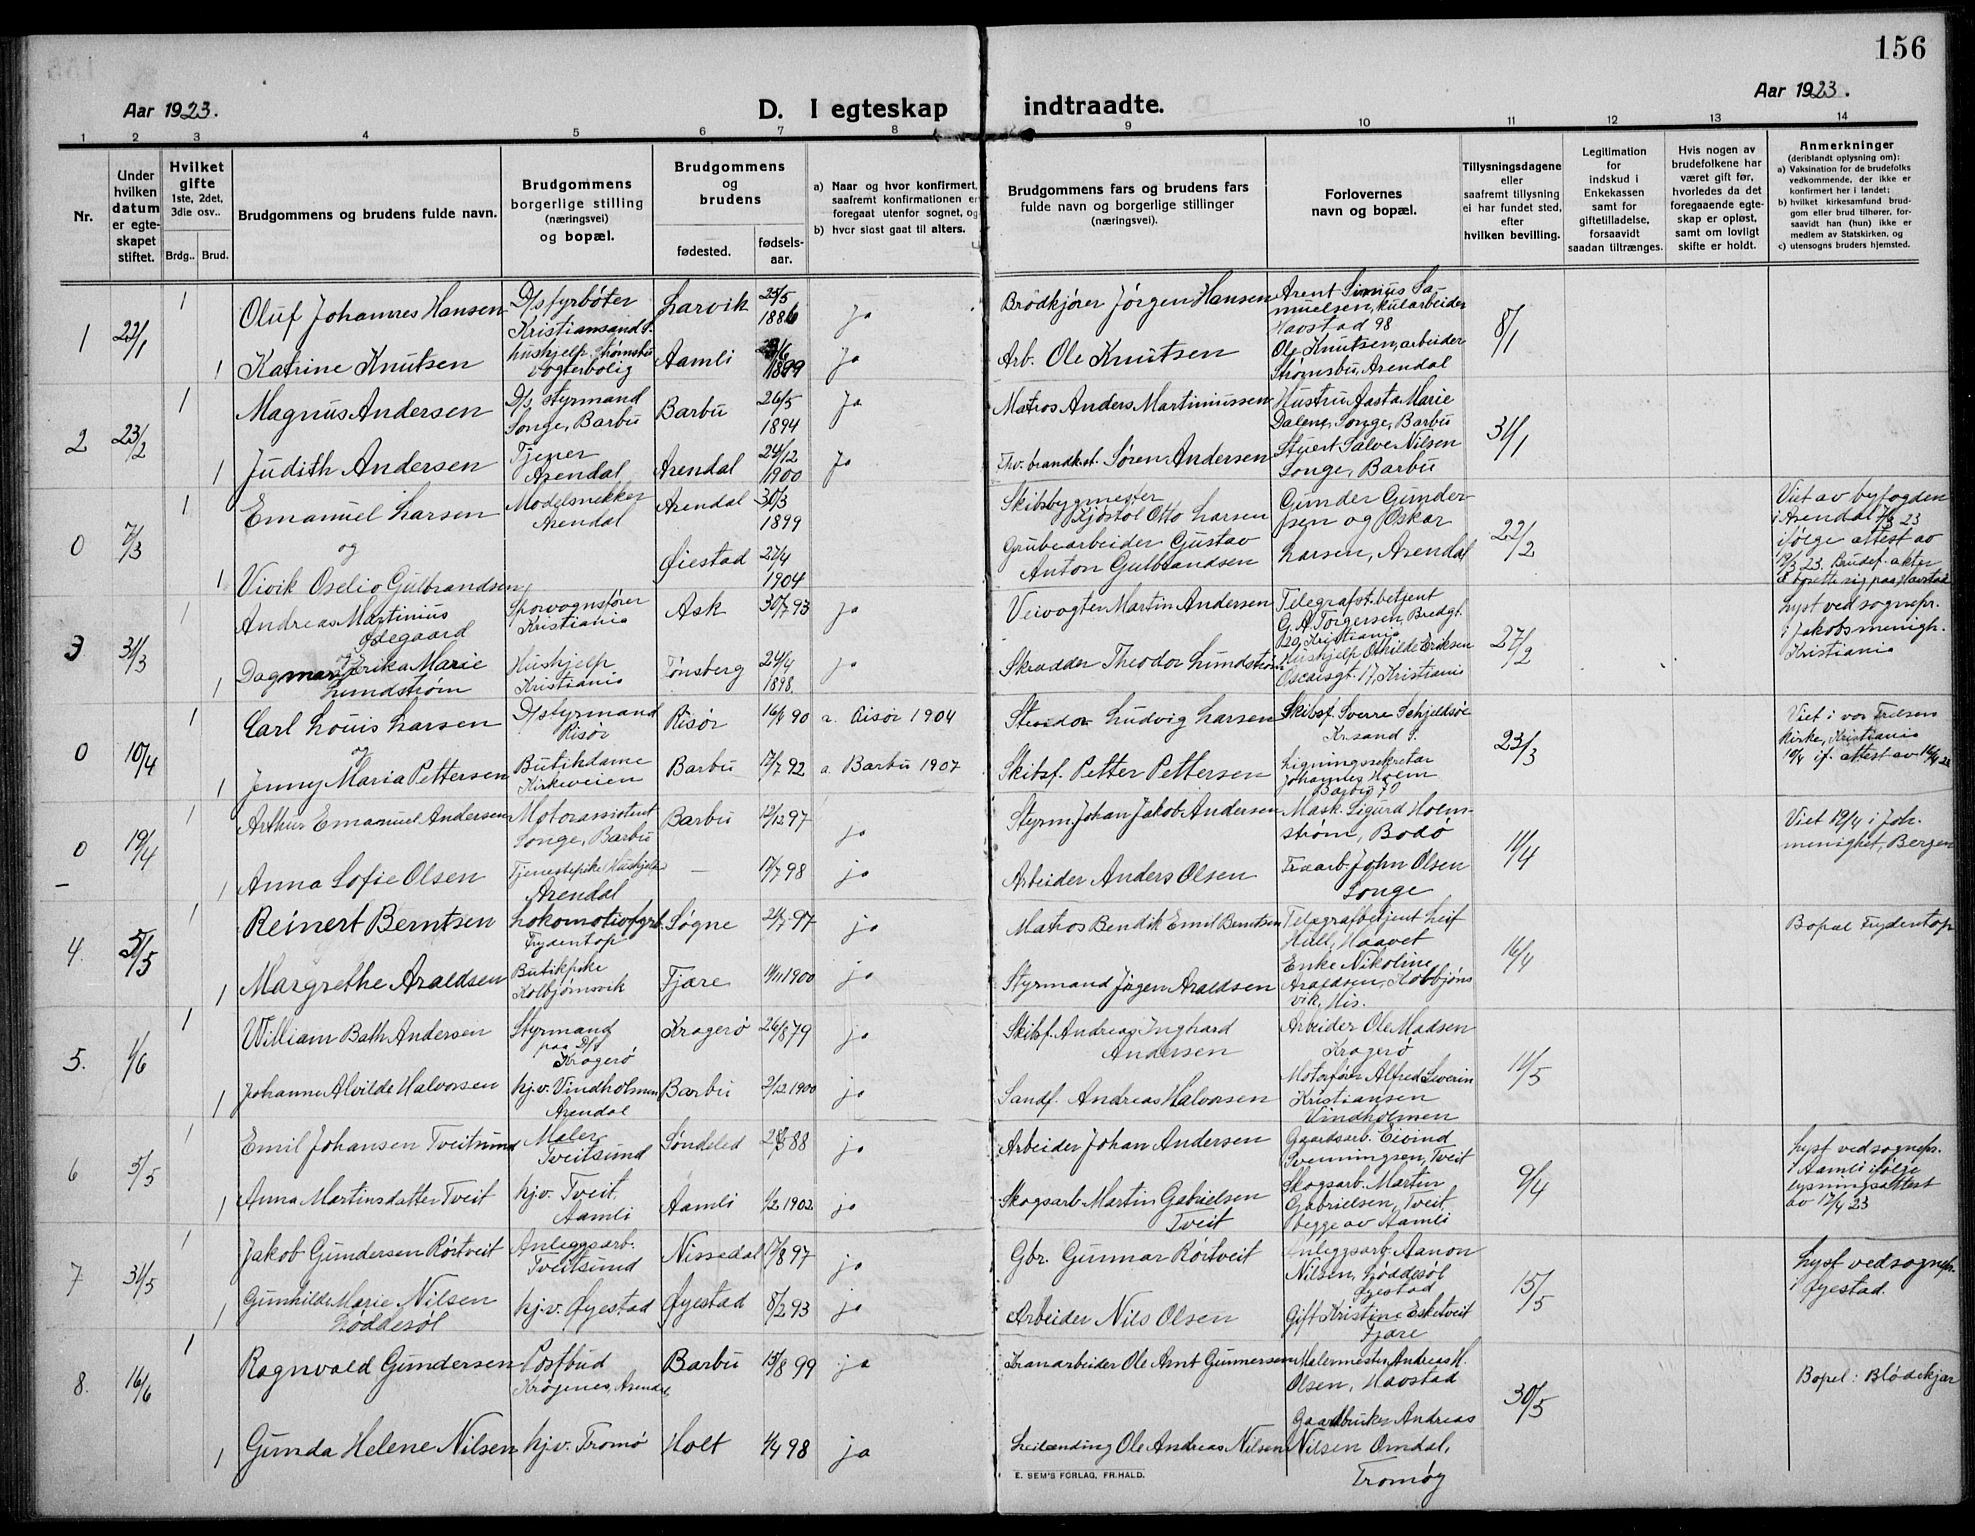 156
Aar 1923.
D. I egteskap indtraadte.
Aar 1923.
1 2 3 4 5 6 7 8 9 10 11 12 13 14
Nr.
Under hvilken datum er egteskapet stiftet.
Hvilket gifte 1ste, 2det, 3die osv..
Brdg.. Brud.
Brudgommens og brudens fulde navn.
Brudgommens borgerlige stilling (næringsvei) og bopæl.
Brudgommens og brudens
fødested. fødselsaar.
a) Naar og hvor konfirmert, saafremt konfirmationen er foregaat utenfor sognet, og
b) hvor sidst gaat til alters.
Brudgommens fars og brudens fars fulde navn og borgerlige stillinger (næringsvei).
Forlovernes navn og bopæl.
Tillysningsdagene eller saafremt tillysning ei har fundet sted, efter hvilken bevilling.
Legitimation for indskud i Enkekassen samt for giftetilladelse, forsaavidt saadan tiltrænges.
Hvis nogen av brudefolkene har været gift før, hvorledes da det foregaaende egteskap er opløst, samt om lovligt skifte er holdt.
Anmerkninger (deriblandt oplysning om):
a) Vaksination for de brudefolks vedkommende, der ikke er konfirmert her i landet;
b) hvilket kirkesamfund brudgom eller brud tilhører, forsaavidt han (hun) ikke er medlem av Statskirken, og
c) utensogns bruders hjemsted.
1 22/1
1 Oluf Johannes Hansen D/s fyrbøter Kristiansand S. Larvik 25/5 1886 ja Brødkjører Jørgen Hansen Arent Simius Samuelsen, kularbeider Havstad 98 8/1
1 Katrine Knutsen hushjelp, Strømsbu vogterbolig Aamli 1899 ja Arb. Ole Knutsen Ole Knutsen, arbeider Strømsbu, Arendal
2 23/2
1 Magnus Andersen D/s styrmand Songe, Barbu Barbu 26/5 1894 Ja Matros Anders Martiniussen Hustru Aasta Marie Dalene, Songe, Barbu 31/1
1 Judith Andersen Tjener Arendal Arendal 24/12 1900 Ja Fhv. brandk.st. Søren Andersen Stuert Salve Nilsen Songe, Barbu
0 7/3
1 Emanuel Larsen Modelsnekker Arendal Arendal 30/3 1899 Skibsbygmester Kjøstol Otto Larsen Gunder Gundersen og Oskar Larsen, Arendal 22/2
og
1 Vivik Oselio Gulbrandsen Øiestad 27/4 1904 Grubearbeider Gustav Anton Gulbrandsen
Viet av byfogden i Arendal 7/3 23 ifølge attest av 19/3 23. Brudef. akter å bosette sig paa Havstad
3 31/3
1 Andreas Martinius Ødegaard Sporvognsfører Kristiania Ask 30/7 93 ja Veivogter Martin Andersen Telegrafst.betjent G. A. Torgersen, Bredgt. 20, Kristiania 27/2
1 Dagmar Erika Marie Lundstrøm Hushjelp Kristiania Tønsberg 24/4 1898 ja Skrædder Theodor Lundstrøm Hushjelp Othilde Eriksen Oscarsgt. 17, Kristiania
Lyst ved sognepr. i Jakobs menigh. Kristiania
0 10/4
1 Carl Louis Larsen D/styrmand Risør Risør 16/8 90 a. Risør 1904 Ludvig Larsen Skibsf. Sverre Schjeldsøe Kr.sand S. 23/3
og
1 Jenny Maria Pettersen Butikdame Kirkeveien Barbu 12/7 92 a. Barbu 1907 Skibsf. Petter Pettersen Ligningssekretær Johannes Holm Barbu 70
Viet i vor Frelsers kirke, Kristiania 10/4 if. attest av 16/4 23
0 19/4
1 Arthur Emanuel Andersen Motorassistent Songe, Barbu Barbu 12/12 97 ja Styrm. Johan Jakob Andersen Mask. Sigurd Holmstrøm, Bodø 11/4
–
1 Anna Sofie Olsen Tjenestepike (Hushjelp) Arendal – 17/7 98 ja Arbeider Anders Olsen Træarb. John Olsen Songe
Viet 19/4 i Joh. menighet, Bergen
4. 5/5
1 Reinert Berntsen Lokomotivfyrb. Frydentop Søgne 21/7 97 ja Matros Bendik Emil Berntsen Telegrafbetjent Leif Hull, Haavet 16/4
1 Margrethe Araldsen Butikpike Kolbjørnsvik Fjære 11/11 1900 ja Styrmand Jørgen Araldsen Enke Nikoline Araldsen, Kolbjørnsvik, His.
Bopæl Frydentop
5. 1/6
1 William Bath Andersen Styrmand paa D/s Kragerø Kragerø 26/8 79 ja Skibsf. Andreas Inghard Andersen Arbeider Ole Madsen Kragerø 11/5
1 Johanne Alvilde Halvorsen hj.v. Vindholmen Arendal Barbu 2/12 1900 ja Sandf. Andreas Halvorsen Motorfører Alfred Severin Kristiansen Vindholmen
6 5/5
1 Emil Johansen Tveitsund Maler Tveitsund Søndeled 88 ja Arbeider Johan Andersen Gaardsarb. Eivind Svenningsen, Tveit 9/4
1 Anna Martinsdatter Tveit hj.v. Tveit, Aamli Aamli 1/2 1902 ja Skogsarb. Martin Gabrielsen Tveit Skogsarb. Martin Gabrielsen, Tveit, begge av Aamli
Lyst ved sognepr. i Aamli ifølge lysningsattest av 17/4 23
7 31/5
1 Jakob Gundersen Rörtveit Anleggsarb. Tveitsund Nissedal 17/8 97 ja Gbr. Gunnar Rörtveit Anleggsarb. Aanon Nilsen, Løddesøl Øyestad 15/5
1 Gunhilde Marie Nilsen Løddesøl hj.v. Øyestad Øyestad 8/2 93 ja Arbeider Nils Olsen Gift Kristine Esketveit Fjære
Lyst ved sognepr. i Øyestad.
8. 16/6
1 Ragnvald Gundersen Postbud Krøgenes, Arendal Barbu 15/8 99 ja Kranarbeider Ole Arnt Gunnersen Malermester Andreas H. Olsen, Havstad 30/5
1 Gunda Helene Nilsen hj.v. Tromø Holt 1/4 98 ja Leilænding Ole Andreas Nilsen Gaardbruker Andreas Nilsen Omdal, Tromøy
Bopel: Blødekjær
E. SEM'S FORLAG, FR.HALD.